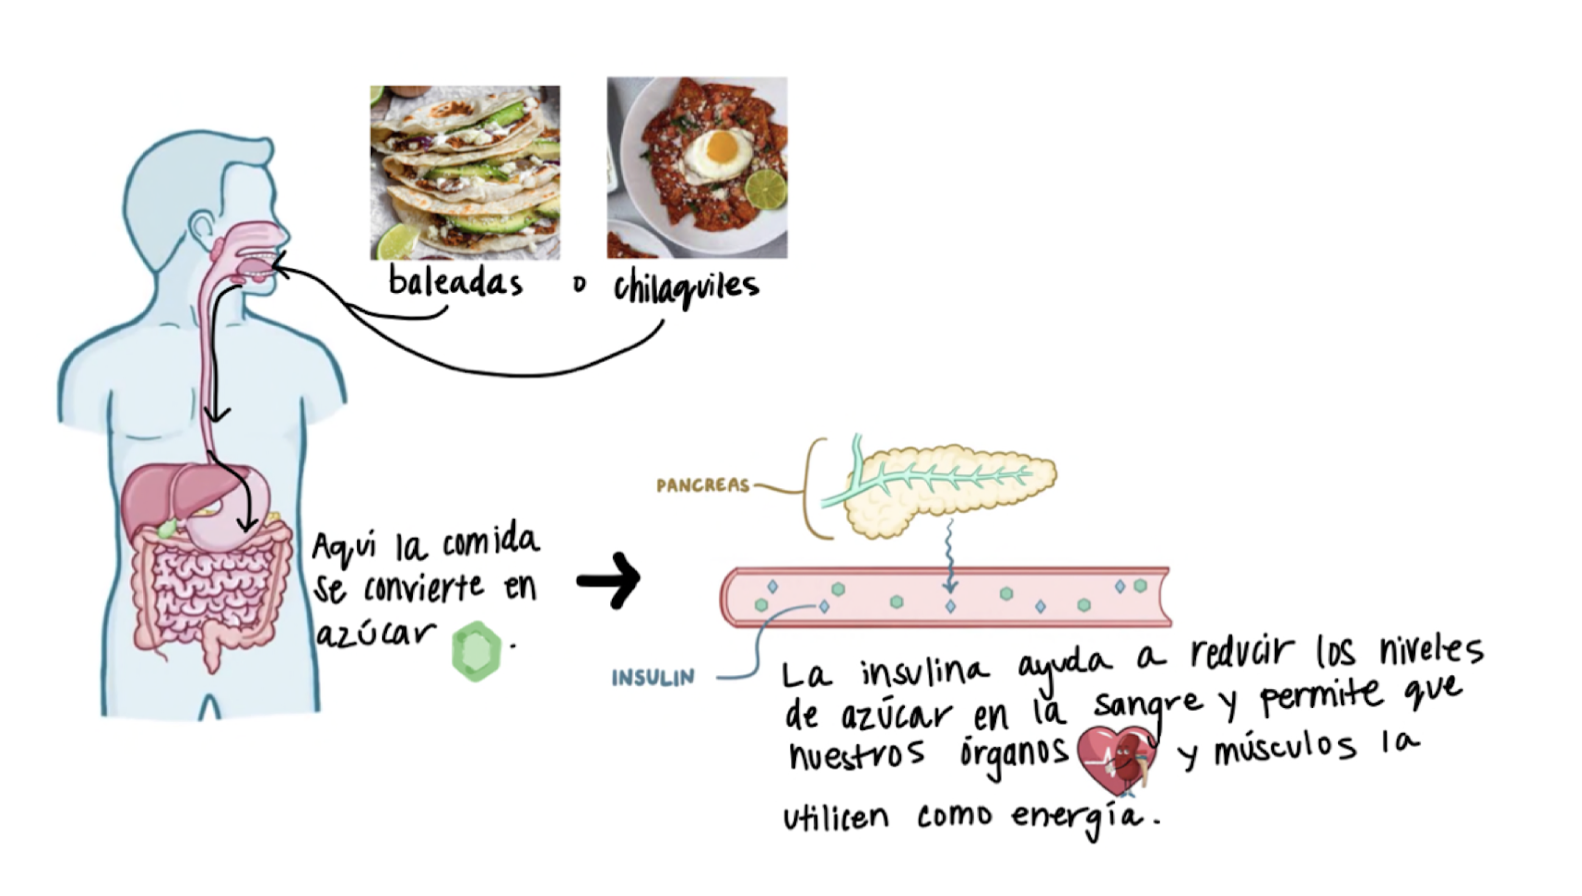 baleadas o chilaquiles
Aquí la comida
se convierte en
azúcar .
PANCREAS
INSULIN
La insulina ayuda a reducir los niveles
de azúcar en la sangre y permite que
nuestros órganos y músculos la
utilicen como energía.